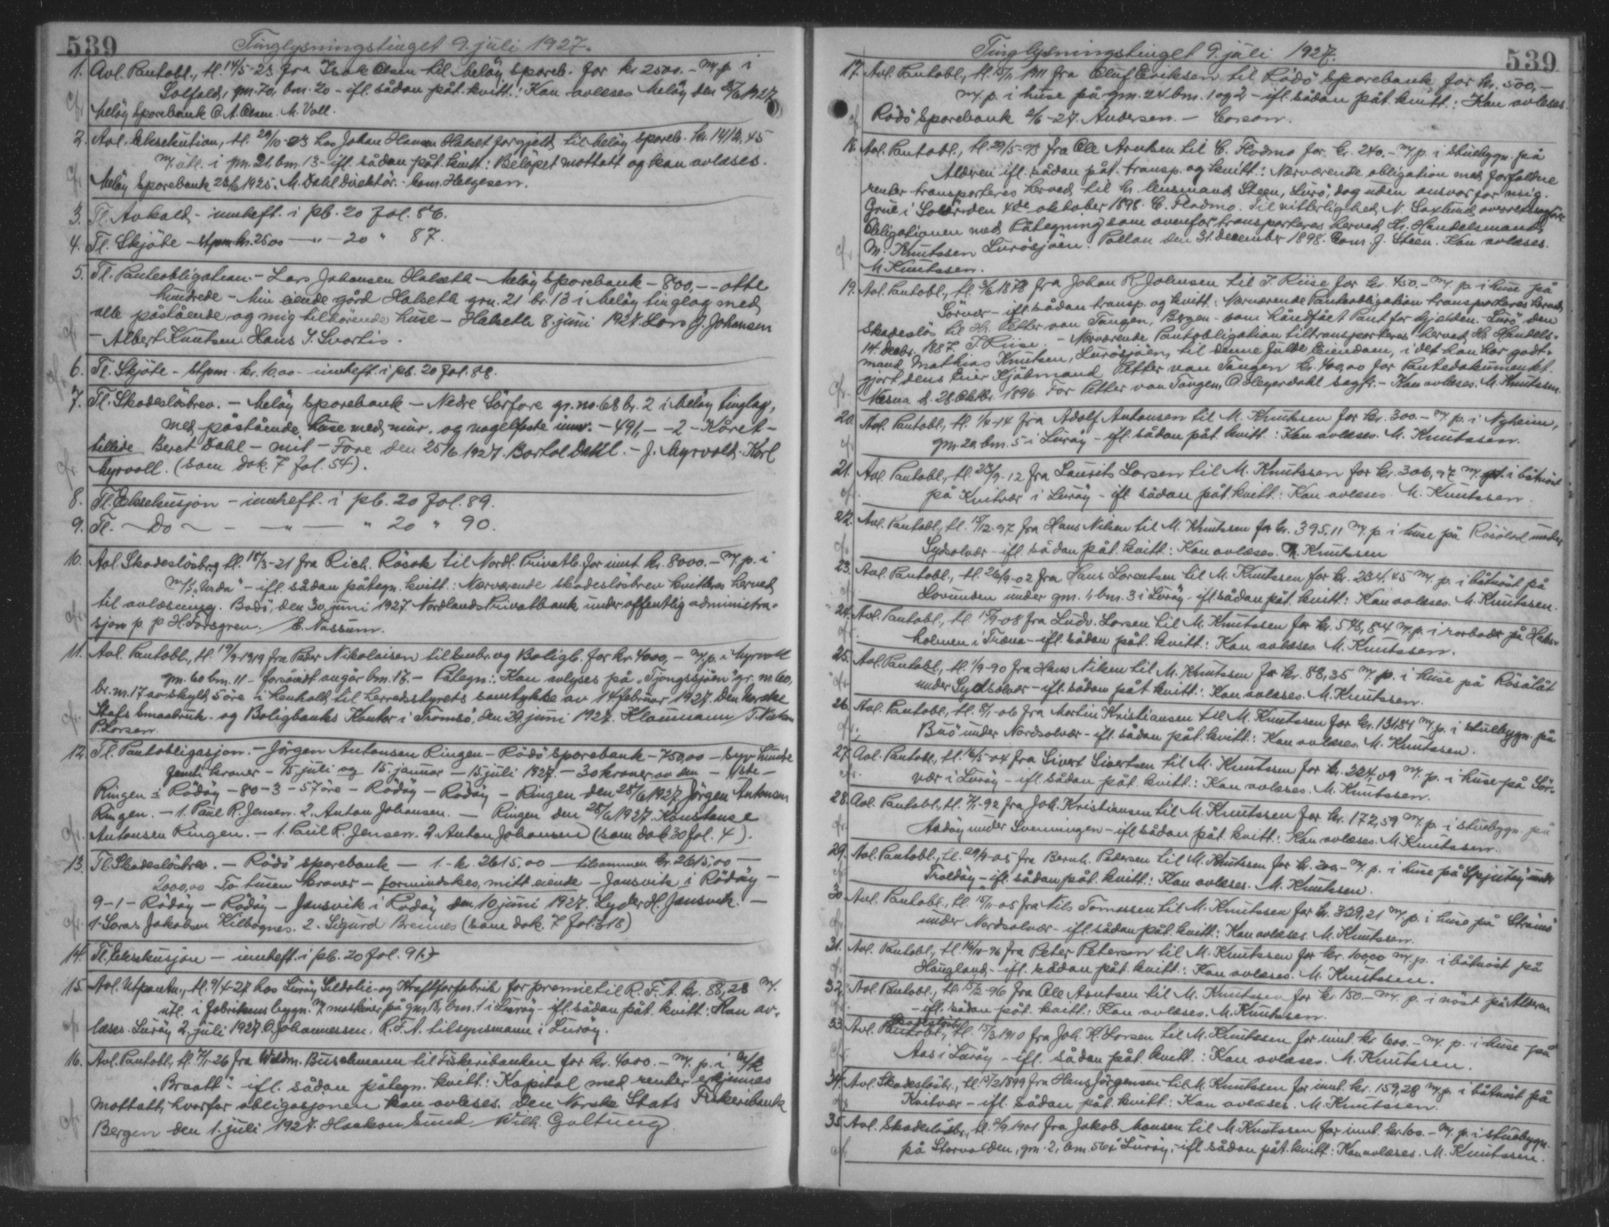 539 Tinglysningstinget 9. juli 1927.
1. Avl. Pantobl., tl. 14/5-23 fra Isak Olsen til Meløy spareb. for kr. 2500.- m/p. i
gnr. 70, bnr. 20 - ifl. sådan påt. kvitt.: Kan avleses Meløy den 1927
Meløy Sparebank O. A. Olsen. M. Voll.
2. Avl. Eksekution, tl. 29/10-23 hos Johan Hansen Halset for gjeld til Meløy spareb. kr. 1412,45
m/utl. i gnr. 21, bnr. 13 - ifl. sådan påt. kvitt: Beløpet mottatt og kan avleses.
Meløy Sparebank 1925. M. Dahl direktör. Helgesen.
3. Tl. Avkald - innheft. i pb. 20 fol. 86.
4. Tl. Skjøte - stpm kr. 2500 -"- 20 " 87.
5. Tl. Panteobligation - Lars Johansen Halseth - Meløy Sparebank - 800,- - otte
hundrede - Min eiende gård Halseth grn. 21 br. 13 i Meløy tinglag med
alle påstående, og mig tilhörende huse - Halseth 8. juni 1927. Lars J. Johansen
- Albert Knutsen Hans I. Svartis.
6. Tl. Skjöte - Stpm. kr. 1000 - innheft. i pb. 20 fol. 88.
7. Tl. Skadeslösbrev. - Meløy Sparebank - Nedre Sørfore gr. no. 68 br. 2 i Meløy tinglag,
med påstående huse med mur- og nagelfaste innr. - 491,- - 2 -
Beret Dahl - mit - Fore den 25/6 1927. Bartol Dahl. - J. Myrvold. Karl
Myrvoll. (Som dok. 7 fol. 54).
8. Tl. Eksekusjon - innheft. i pb. 20 fol. 89.
9. Tl. - Do - - " - " 20 " 90.
10. Avl. Skadeslösbrev tl. 18/3-21 fra Rich. Rösok til Nordl. Privatb. for innt. kr. 8000.- m/p. i
m/k - ifl. sådan påtegn. kvitt: Nærværende skadeslösbrev kvitteres herved
til avlæsning. Bodö, den 30 juni 1927 Nordlands Privatbank under offentlig administra-
sjon p. p. H. Forsgren. E. Nossum.
11. Avl. Pantobl., tl. 1919 fra Peder Nikolaisen til Småbr. og Boligb. for kr. 4000,- m/p. i Myrvoll
gnr. 60 bnr. 11 - forsåvidt angår bnr. 17. - Påtegn.: Kan avlyses på "Tjongssjøen" gr. nr. 60,
br. nr. 17 av skyld 5 øre i henhold til herredsstyrets samtykke av 14 februar 1927. Den Norske
Stats Småbruk- og Boligbanks Kontor i Tromsö, den 29 juni 1927. Klaumann
P. Larsen.
12. Tl. Pantobligasjon. - Jörgen Antonsen Ringen - Rödö Sparebank - 750,00 - syv hundre
femti kroner - 15 juli og 15. januar - 15 juli 1927. - 30 kroner av den - 1ste -
Ringen i Rödøy - 80 - 3 - 57 øre - Rödøy - Rödøy - Ringen den 28/6 1927 Jörgen Antonsen
Ringen. - 1. Paul R. Jensen. 2. Anton Johansen. - Ringen den 28/6 1927. Konstanse
Antonsen Ringen. - 1. Paul R. Jensen. 2 Anton Johansen (som dok 30 fol. 4).
13. Tl. Skadeslösbrev. - Rödö Sparebank - 1. - kr. 2615,00 - tilsammen kr 2615,00 -
2000,00 To tusen kroner - formindskes, mitt eiende - Jansvik i Rödøy -
9 - 1 - Rödøy - Rödøy - Jansvik i Rödøy den 10 juni 1927. Lyder H. Jansvik. -
1. Jakobsen Kilbognes. 2. Sigurd Breines (som dok. 7 fol. 318)
14. Tl. Eksekusjon - innheft. i pb. 20 fol. 91.
15. Avl. Utpantn., tl. 9/4-27 hos Lurøy Sildolje- og Kraftforfabrik for premie til R. F. A. kr. 88,28 m/
utl. i fabrikens bygn. m/ maskiner på gnr. 13, bnr. 1 i Lurøy - ifl. sådan påt. kvitt: Kan av-
læses. Lurøy 2. juli 1927. O. Johannessen. R.F.A. tilsynsmann i Lurøy.
16. Avl. Pantobl., tl. -26 fra Wildm. Buschmann til Fiskeribanken for kr. 4000.- m/p. i m/k
"Braatt" ifl. sådan påtegn. kvitt: Kapital med renter erkjennes
mottatt, hvorfor obligasjonen kan avleses. Den Norske Stats Fiskeribank
Bergen den 1. juli 1927. Haakon Sund. Wilh. Galtung.
Tinglysningstinget 9. juli 1927. 539
17. Avl. Pantobl., tl. 1911 fra Oluf Eriksen til Rödö Sparebank for kr. 500,-
m/p. i huse på gnr. 24 bnr. 1 og 2 - ifl. sådan påt. kvitt: Kan avleses
Rödö Sparebank -27 Andersen. - Corson.
18. Avl. Pantobl., tl. 29/5-93 fra Ole Arntsen til C. Flodmo for kr. 240.- m/p. i stuebygn. på
Alderen ifl. sådan påt. transp. og kvitt: Nærværende obligation med forfaldne
renter transporteres herved til hr. lensmand Steen, Lurö, dog uden ansvar for mig.
Grue i Solørden 4de oktober 1898. C. Flodmo. Til vitterlighed: N. Saxlund, overretssagfører
Obligationen med Påtegning som ovenfor transporteres herved Hr. Handelsmand
M. Knutssen Lurösjøen. Pollan den 31. december 1898. Com. J. Steen. Kan avleses.
M. Knutssen.
19. Avl. Pantobl., tl. 1878 fra Johan R. Johnsen til T. Riise for kr. 450.- m/p. i huse på
Sörvær - ifl. sådan transp. og kvitt: Nærværende Panteobligation transporteres herved
Skadeslös til Hr. Petter von Tangen, Bergen - som håndfået Pant for Gjelden. Lurö den
14. decbr. 1887. T. Riise. - Nærværende Pantobligation tiltransporteres herved Hr. Handels-
mand Mathias Knutsen, Lurösjøen, til denne fulde Eiendom, i det han har godt-
gjort dens Eier Kjöbmand Petter von Tangen kr. 400,00 for Pantedokumentet.
Nesna d. 28. Oktbr. 1896. For Petter von Tangen O. Heyerdahl sagf. - Kan avleses. M. Knutssen.
20. Avl. Pantobl., tl. -14 fra Adolf Antonsen til M. Knutssen for kr. 300.- m/p. i Nyheim,
gnr. 22 bnr. 5 i Lurøy - ifl. sådan påt kvitt: Kan avleses. M. Knutssen.
21. Avl. Pantobl., tl. 23/9-12 fra Laurits Larsen til M. Knutssen for kr. 306,97 m/p. i båtnöst
på Kvitvær i Lurøy - ifl. sådan påt kvitt: Kan avleses. M. Knutssen.
22. Avl. Pantobl., tl. /12-97 fra Hans Nilsen til M. Knutssen for kr. 395.11 m/p. i huse på under
Sydsolvær - ifl. sådan påt. kvitt: Kan avlæses. M. Knutssen
23. Avl. Pantobl., tl. 26/9-02 fra Hans Lorentsen til M. Knutssen for kr. 234.45 m/p. i båtnöst på
Lovunden under gnr. 4 bnr. 3 i Lurøy - ifl. sådan påt. kvitt: Kan avleses. M. Knutssen.
24. Avl. Pantobl., tl. -08 fra Ludv. Larsen til M. Knutssen for kr. 578,84 m/p. i rorbode på
holmen i Træna - ifl. sådan påt. kvitt: Kan avleses M. Knutssen.
25. Avl. Pantobl., tl. -90 fra Hans Nilsen til M. Knutssen for kr. 88,35 m/p. i huse på
under Sydsolvær - ifl. sådan påt. kvitt: Kan avleses. M. Knutssen.
26. Avl. Pantobl., tl. -06 fra Martin Kristiansen til M. Knutssen for kr. 131.84 m/p. i stuebygn. på
under Nordsolvær - ifl. sådan påt. kvitt: Kan avleses. M. Knutssen.
27. Avl. Pantobl., tl. -04 fra Sivert Sivertsen til M. Knutssen for kr. 224,09 m/p. i huse på Sör-
vær i Lurøy - ifl. sådan påt. kvitt: Kan avleses. M. Knutssen.
28. Avl. Pantobl., tl. -92 fra Joh. Kristiansen til M. Knutssen for kr. 172,59 m/p. i stuebygn. på
under Svenningen - ifl. sådan påt. kvitt: Kan avleses. M. Knutssen.
29. Avl. Pantobl., tl. -05 fra Bernh. Pedersen til M. Knutssen for kr. 200.- m/p. i huse på under
- ifl. sådan påt. kvitt: Kan avleses. M. Knutssen.
30. Avl. Pantobl., tl. -05 fra Nils Tomassen til M. Knutssen for kr. 329,21 m/p. i huse på
under Nordsolvær - ifl. sådan påt. kvitt: Kan avleses. M. Knutssen.
31. Avl. Pantobl., tl. -96 fra Peter Petersen til M. Knutssen for kr. 100,00 m/p. i båtnöst på
Haugland - ifl. sådan påt. kvitt: Kan avleses. M. Knutssen.
32. Avl. Pantobl., tl. -96 fra Ole Arntsen til M. Knutssen for kr. 150.- m/p. i nöst på Alderen
- ifl. sådan påt. kvitt: Kan avleses. M. Knutssen.
33. Avl. Skadeslösbr., tl. 1910 fra Joh. H. Larsen til M. Knutssen for innt. kr. 600.- m/p. i huse på
Aas i Lurøy - ifl. sådan påt. kvitt: Kan avleses. M. Knutssen.
34. Avl. Skadeslösbr., tl. 1899 fra Hans Jörgensen til M. Knutssen for innt. kr. 159,28 m/p. i båtnöst på
Kvitvær - ifl. sådan påt. kvitt: Kan avleses. M. Knutssen.
35. Avl. Skadeslösbr., tl. 1901 fra Jakob Hansen til M. Knutssen for innt. kr. 100.- m/p. i stuebygn.
på Storvolden, gnr. 2, bnr. 5 i Lurøy - ifl. sådan påt. kvitt: Kan avleses. M. Knutssen.